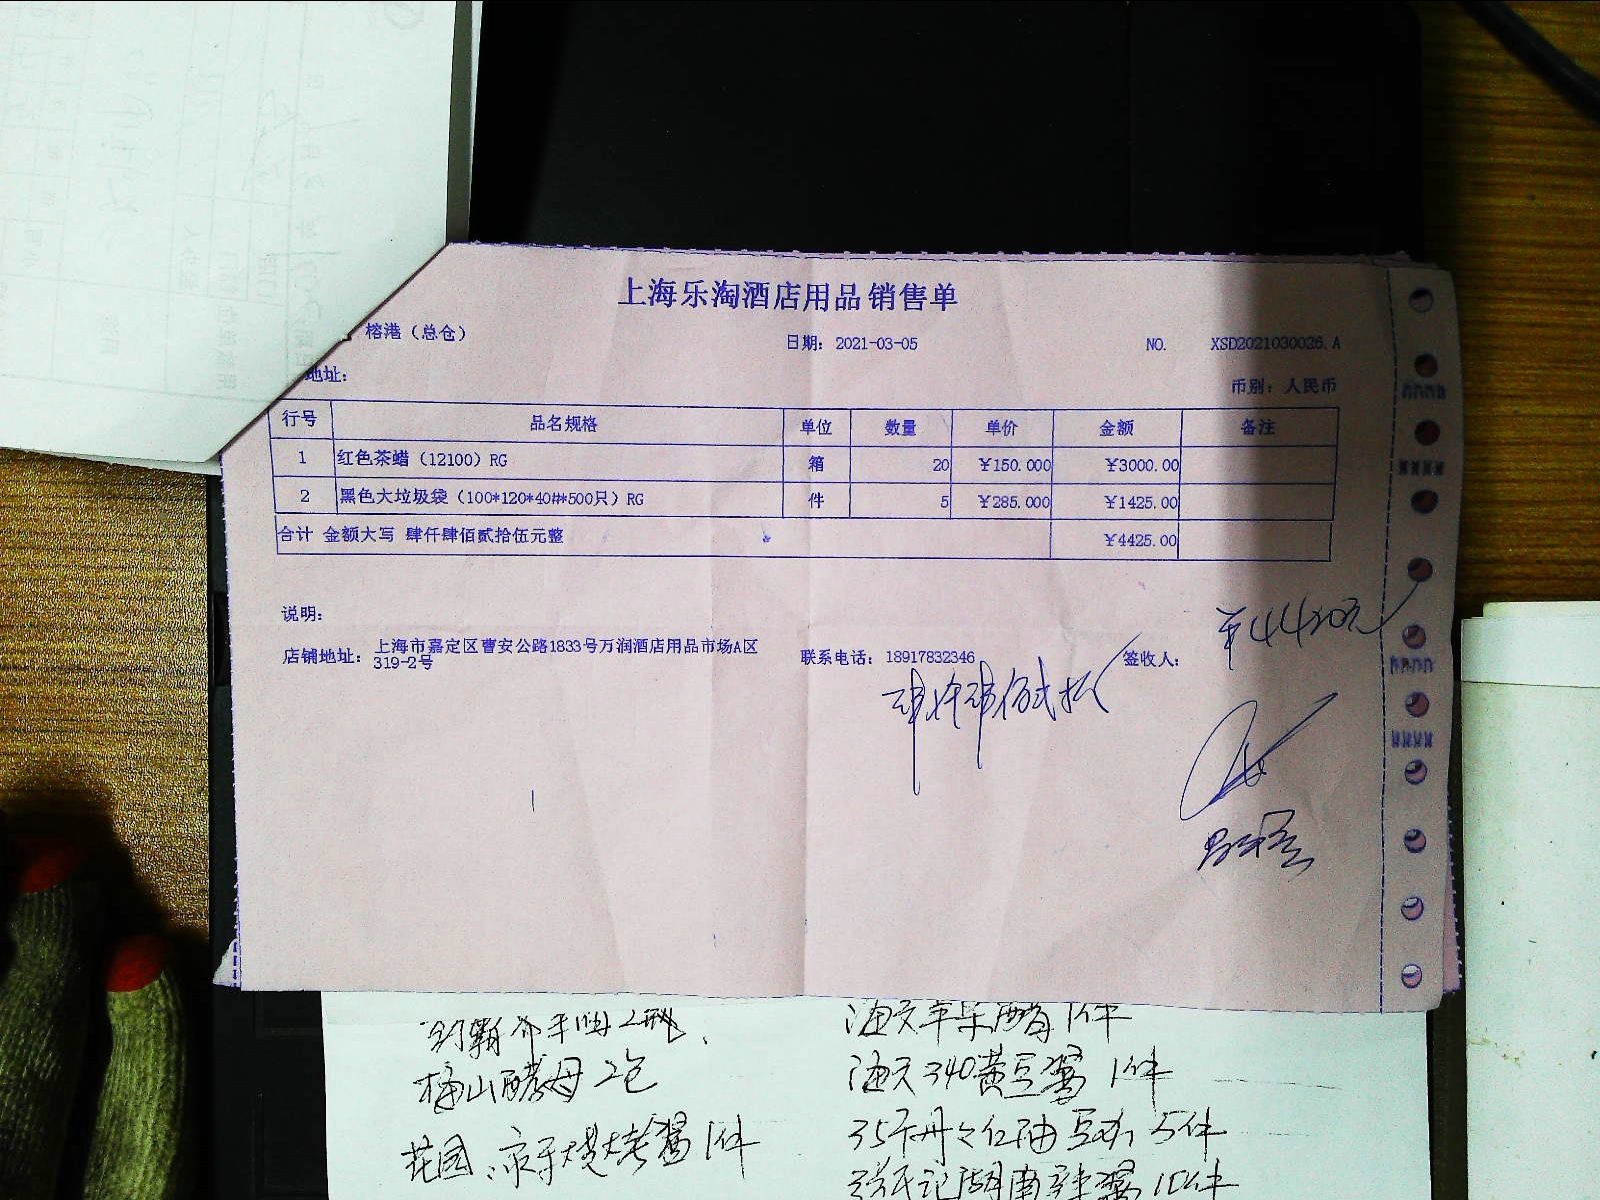 上海乐淘酒店用品销售单
榕港（总仓）
日期：2021-03-05
NO. XSD2021030026.A
地址：
币别：人民币
行号 品名规格 单位 数量 单价 金额 备注
1 红色茶蜡（12100）RG 箱 20 ¥150.000 ¥3000.00
2 黑色大垃圾袋（100*120*40##*500只）RG 件 5 ¥285.000 ¥1425.00
合计 金额大写 肆仟肆佰贰拾伍元整 ¥4425.00
说明：
店铺地址：上海市嘉定区曹安公路1833号万润酒店用品市场A区
319-2号
联系电话：18917832346
签收人：
¥4420元
海天苹果醋1件
梅山酵母2包
海天340黄豆酱1件
花园 烧烤酱1件
5件
10件